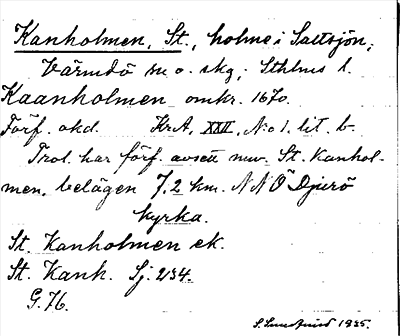 Kanholmen, St., holme i Saltsjön,
Värmdö sn o. skg; Sthlms l.
Kaanholmen omkr. 1670.
Förf. okd. Kr.A, XXII, No 1. lit. b.
Trol. har förf. avsett nuv. St. Kanhol-
men, belägen 7,2 km. NNÖ Djurö
kyrka.
St. Kanholmen ek.
St. Kanh. Sj. 234.
G. 76.
S. 1935.